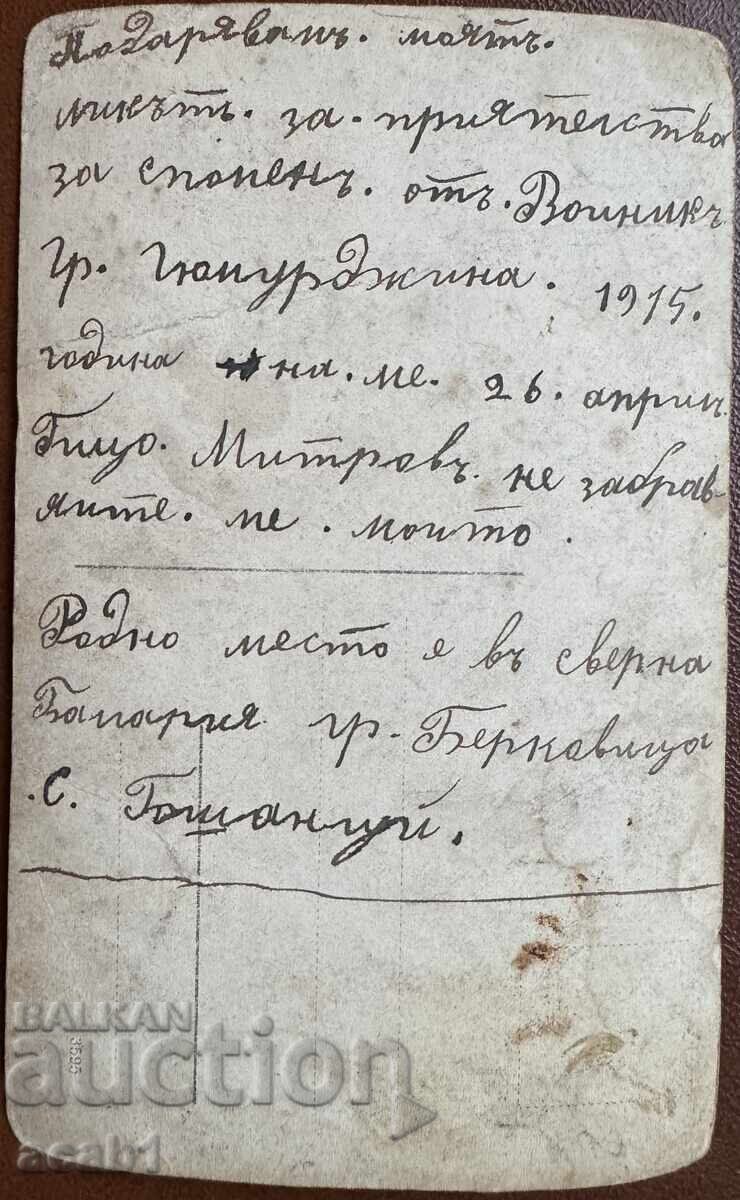 Подарявамъ. моятъ.
ликътъ. за. приятелство
за споменъ. отъ. Воиникъ
гр. Гюмурджина. 1915.
година на. ме. 26. април.
Гицо. Митровъ. не забрав-
яите. ме. моито.
Родно место е въ сверна
Балгария гр. Берковица
.с.
BALKAN
auction
3595
acab1